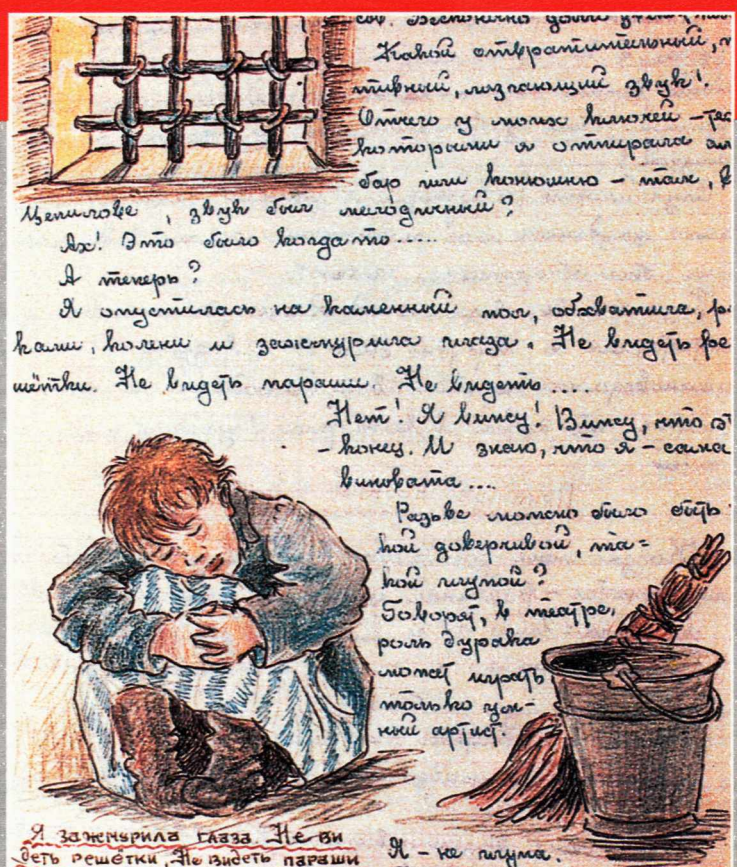 Какой отвратительный,
тивный, лязгающий звук!
Отчего у моих ключей –
которыми я отпирала ам
бар или конюшню – там, в
Цепилове, звук был мелодичный?
Ах! Это было когда то.....
А теперь?
Я опустилась на каменный пол, обхватила, р
ками, колени и зажмурила глаза. Не видеть ре
шётки. Не видеть параши. Не видеть ....
Нет! Я вижу! Вижу, что э
– конец. И знаю, что я – сама
виновата ....
Разве можно было быть
кой доверчивой, та=
кой глупой?
Говорят, в театре,
роль дурака
может играть
только ум-
ный артист.
Я – не глупа.
Я зажмурила глаза. Не ви
деть решётки, Не видеть параши